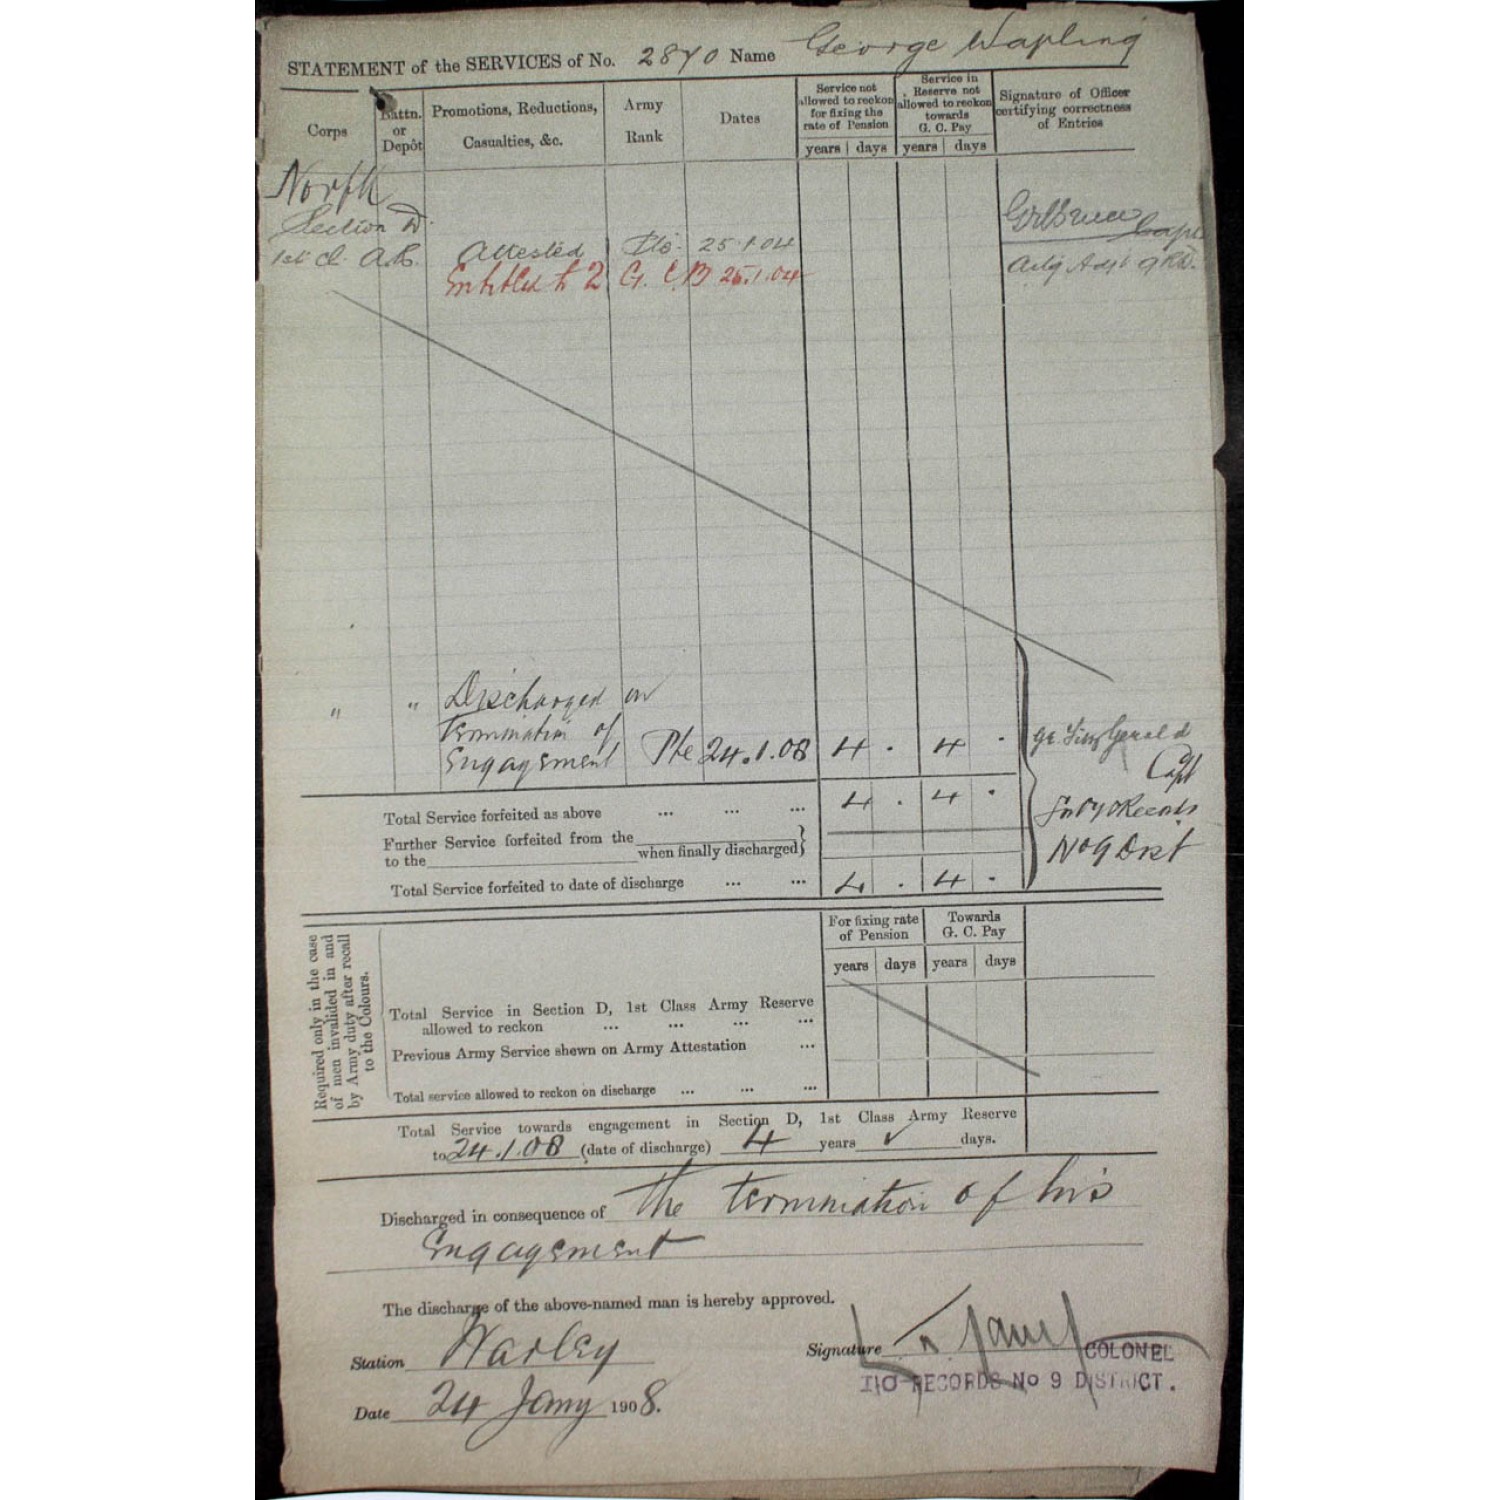 STATEMENT of the SERVICES of No. 2870 Name George Wapling
Corps
Battn. or Depôt
Promotions, Reductions, Casualties, &c.
Army Rank
Dates
Service not allowed to reckon for fixing the rate of Pension
years days
Service in Reserve not allowed to reckon towards G. C. Pay
years days
Signature of Officer certifying correctness of Entries
Norfk
Section D.
1st Cl. A.R. Attested Pte. 25.1.04
Entitled to 2 G. C. B 25.1.04
Capt
" " Discharged on
termination of
Engagement Pte 24.1.08 4 . 4 .
Fitz Gerald
Capt
Records
No 9 Dist
Total Service forfeited as above ... ... ... 4 . 4 .
Further Service forfeited from the
to the when finally discharged}
Total Service forfeited to date of discharge ... ... 4 . 4 .
For fixing rate of Pension
Towards G. C. Pay
years days years days
Required only in the case
of men invalided in and
by Army duty after recall
to the Colours.
Total Service in Section D, 1st Class Army Reserve
allowed to reckon ... ... ... ...
Previous Army Service shewn on Army Attestation ...
Total service allowed to reckon on discharge ... ... ...
Total Service towards engagement in Section D, 1st Class Army Reserve
to 24.1.08 (date of discharge) 4 years ✓ days.
Discharged in consequence of the termination of his
Engagement
The discharge of the above-named man is hereby approved.
Station Warley
Signature COLONEL
I/O RECORDS No 9 DISTRICT.
Date 24 Jany 1908.